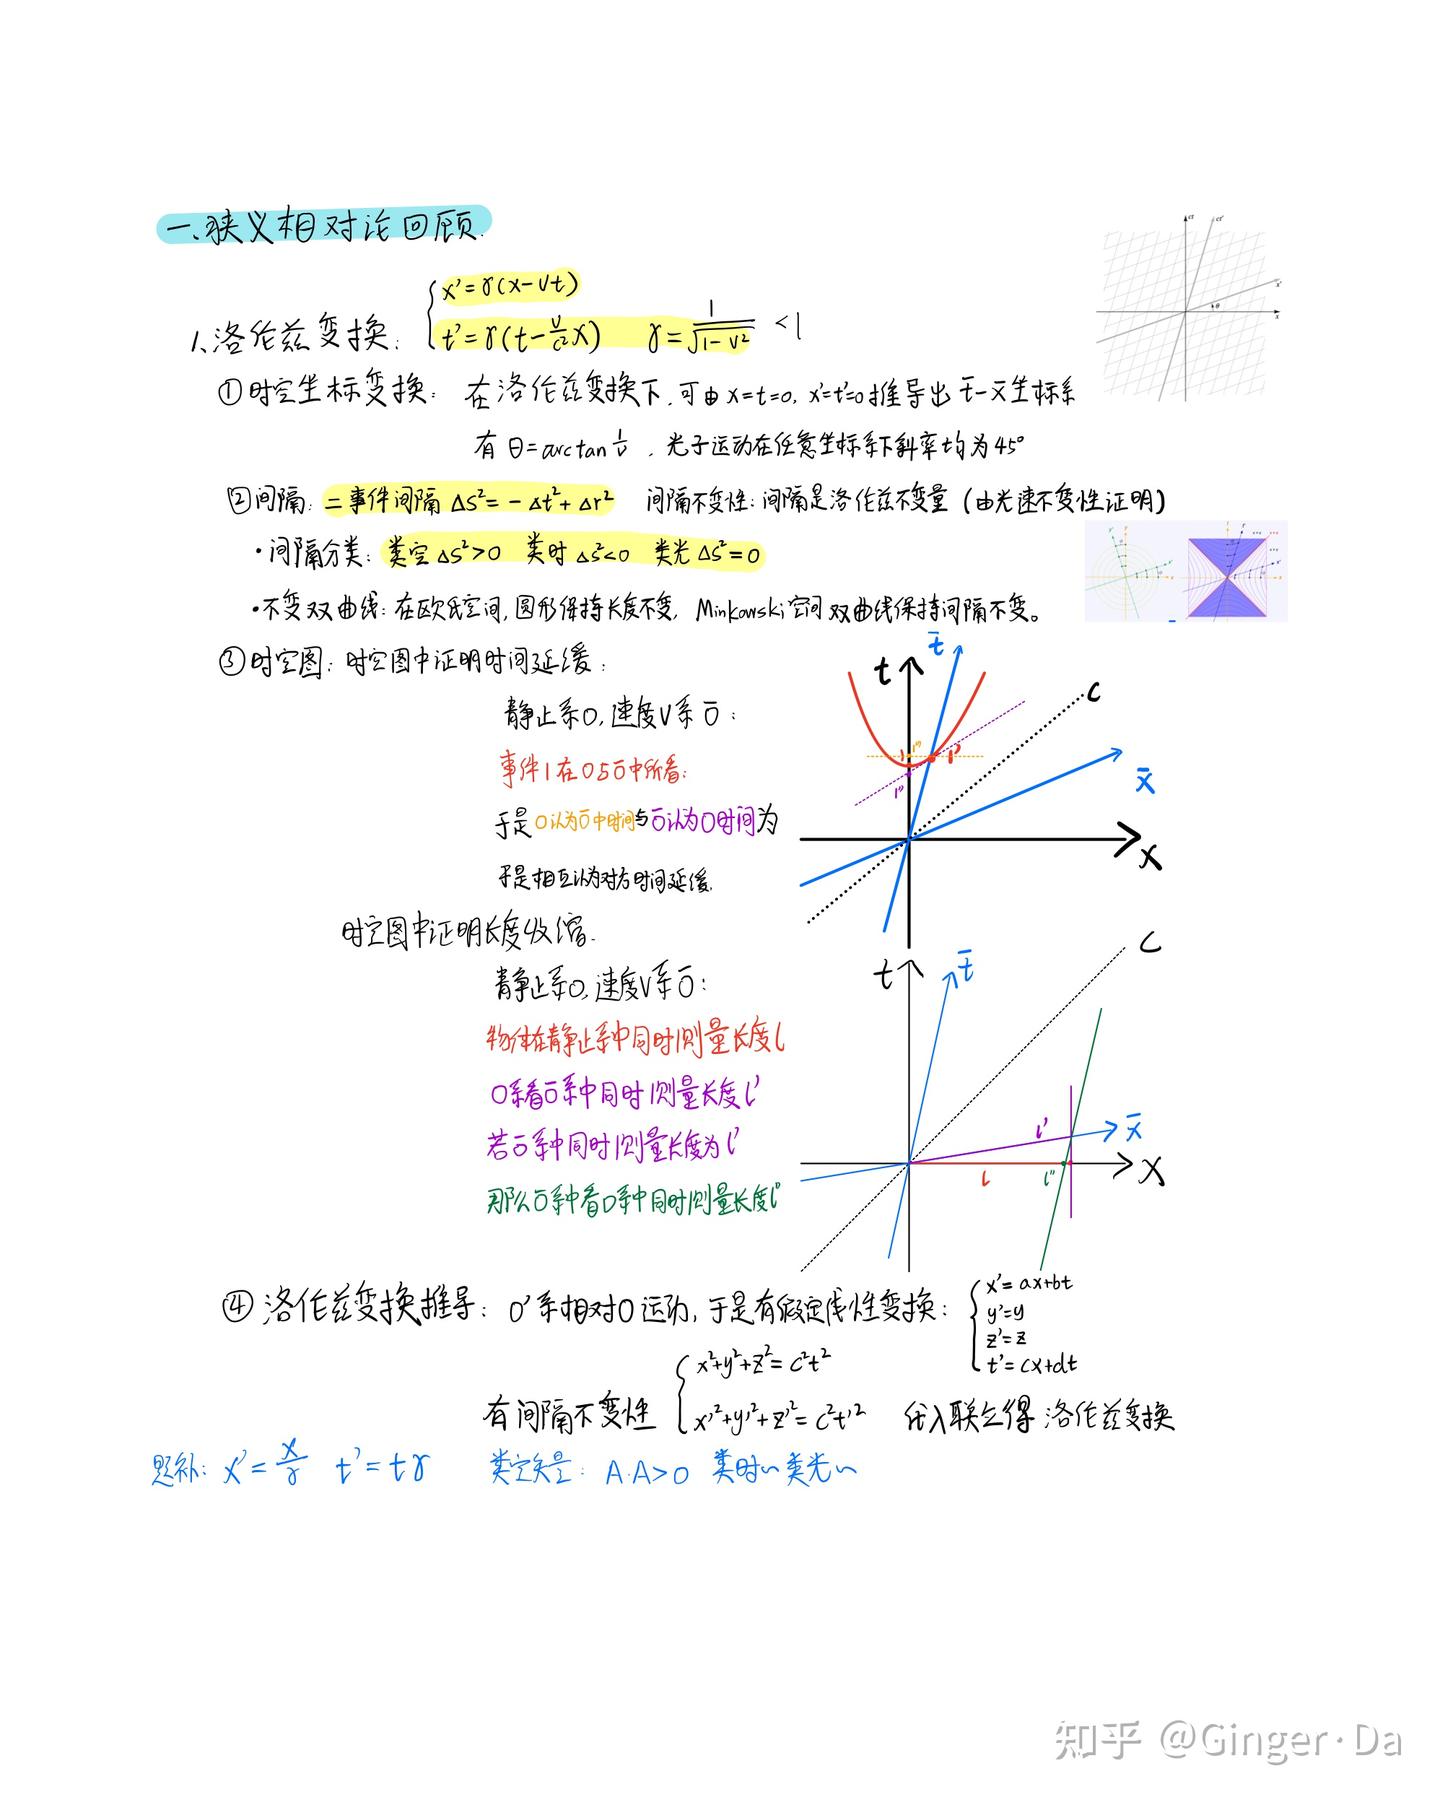 一、狭义相对论回顾.
1、洛伦兹变换: { x'=γ(x-vt)
t'=γ(t-v/c²x) γ=1/√(1-v²) <1
①时空坐标变换: 在洛伦兹变换下,可由x=t=0, x'=t'=0推导出 t̄-x̄坐标系
有 θ=arctan 1/v , 光子运动在任意坐标系下斜率均为45°
②间隔: 二事件间隔 Δs²=-Δt²+Δr² 间隔不变性:间隔是洛伦兹不变量 (由光速不变性证明)
·间隔分类: 类空Δs²>0 类时Δs²<0 类光Δs²=0
·不变双曲线:在欧氏空间,圆形保持长度不变, Minkowski空间双曲线保持间隔不变。
③时空图:时空图中证明时间延缓:
静止系O,速度V系Ō:
事件1在O与Ō中所看:
于是O认为Ō中时间与Ō认为O时间为
于是相互认为对方时间延缓.
t t̄ c x̄ x
1 1'' 1' 1''
时空图中证明长度收缩.
静止系O,速度V系Ō:
物体在静止系中同时测量长度l
O系看Ō系中同时测量长度l'
若Ō系中同时测量长度为l'
那么Ō系中看O系中同时测量长度l''
t t̄ c x̄ x
l' l l''
④ 洛伦兹变换推导: O'系相对O运动,于是有假定线性变换: { x'=ax+bt
y'=y
z'=z
t'=cx+dt
有间隔不变性 { x²+y²+z²=c²t²
x'²+y'²+z'²=c²t'² 代入联立得 洛伦兹变换
题补: x'=x/γ t'=tγ 类空矢量: A·A>0 类时~类光~
知乎 @Ginger·Da